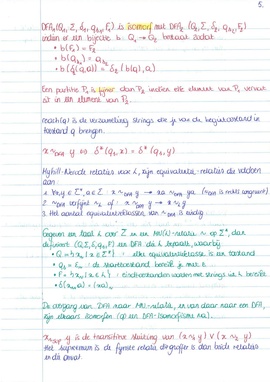 5.
DFA₁(Q₁, Σ, δ₁, q₀₁, F₁) is isomorf met DFA₂(Q₂, Σ, δ₂, q₀₂, F₂)
indien er een bijectie b: Q₁ → Q₂ bestaat zodat
• b(F₁) = F₂
• b(q₀₁) = q₀₂
• b(δ₁(q,a)) = δ₂(b(q), a)
Een partitie P₁ is fijner dan P₂ indien elk element van P₁ vervat
zit in een element van P₂.
reach(q) is de verzameling strings die je van de begintoestand in
toestand q brengen.
x ~DFA y ⟺ δ*(q₀, x) = δ*(q₀, y)
Myhill-Nerode relaties voor L, zijn equivalentie-relaties die voldoen
aan
1. ∀x,y ∈ Σ*, a ∈ Σ : x ~DFA y → xa ~DFA ya (~DFA is rechts congruent)
2. ~DFA verfijnt ~L of: x ~DFA y → x ~L y
3. Het aantal equivalentieklassen van ~DFA is eindig
Gegeven een taal L over Σ en MN(L)-relatie ~ op Σ*, dan
definieert (Q, Σ, δ, q₀, F) een DFA die L bepaalt, waarbij
• Q = {x~ | x ∈ Σ*} : elke equivalentieklasse is een toestand
• q₀ = ε~ : de starttoestand bereik je met ε
• F = {x~ | x ∈ L} : eindtoestanden worden met strings uit L bereikt
• δ(x~, a) = (xa)~
De overgang van DFA naar MN-relatie, en van daar naar een DFA,
zijn elkaars inversen (op een DFA-isomorfisme na).
x ~sup y is de transitieve sluiting van (x ~₁ y) ∨ (x ~₂ y)
Het supremum is de fijnste relatie die grover is dan beide relaties